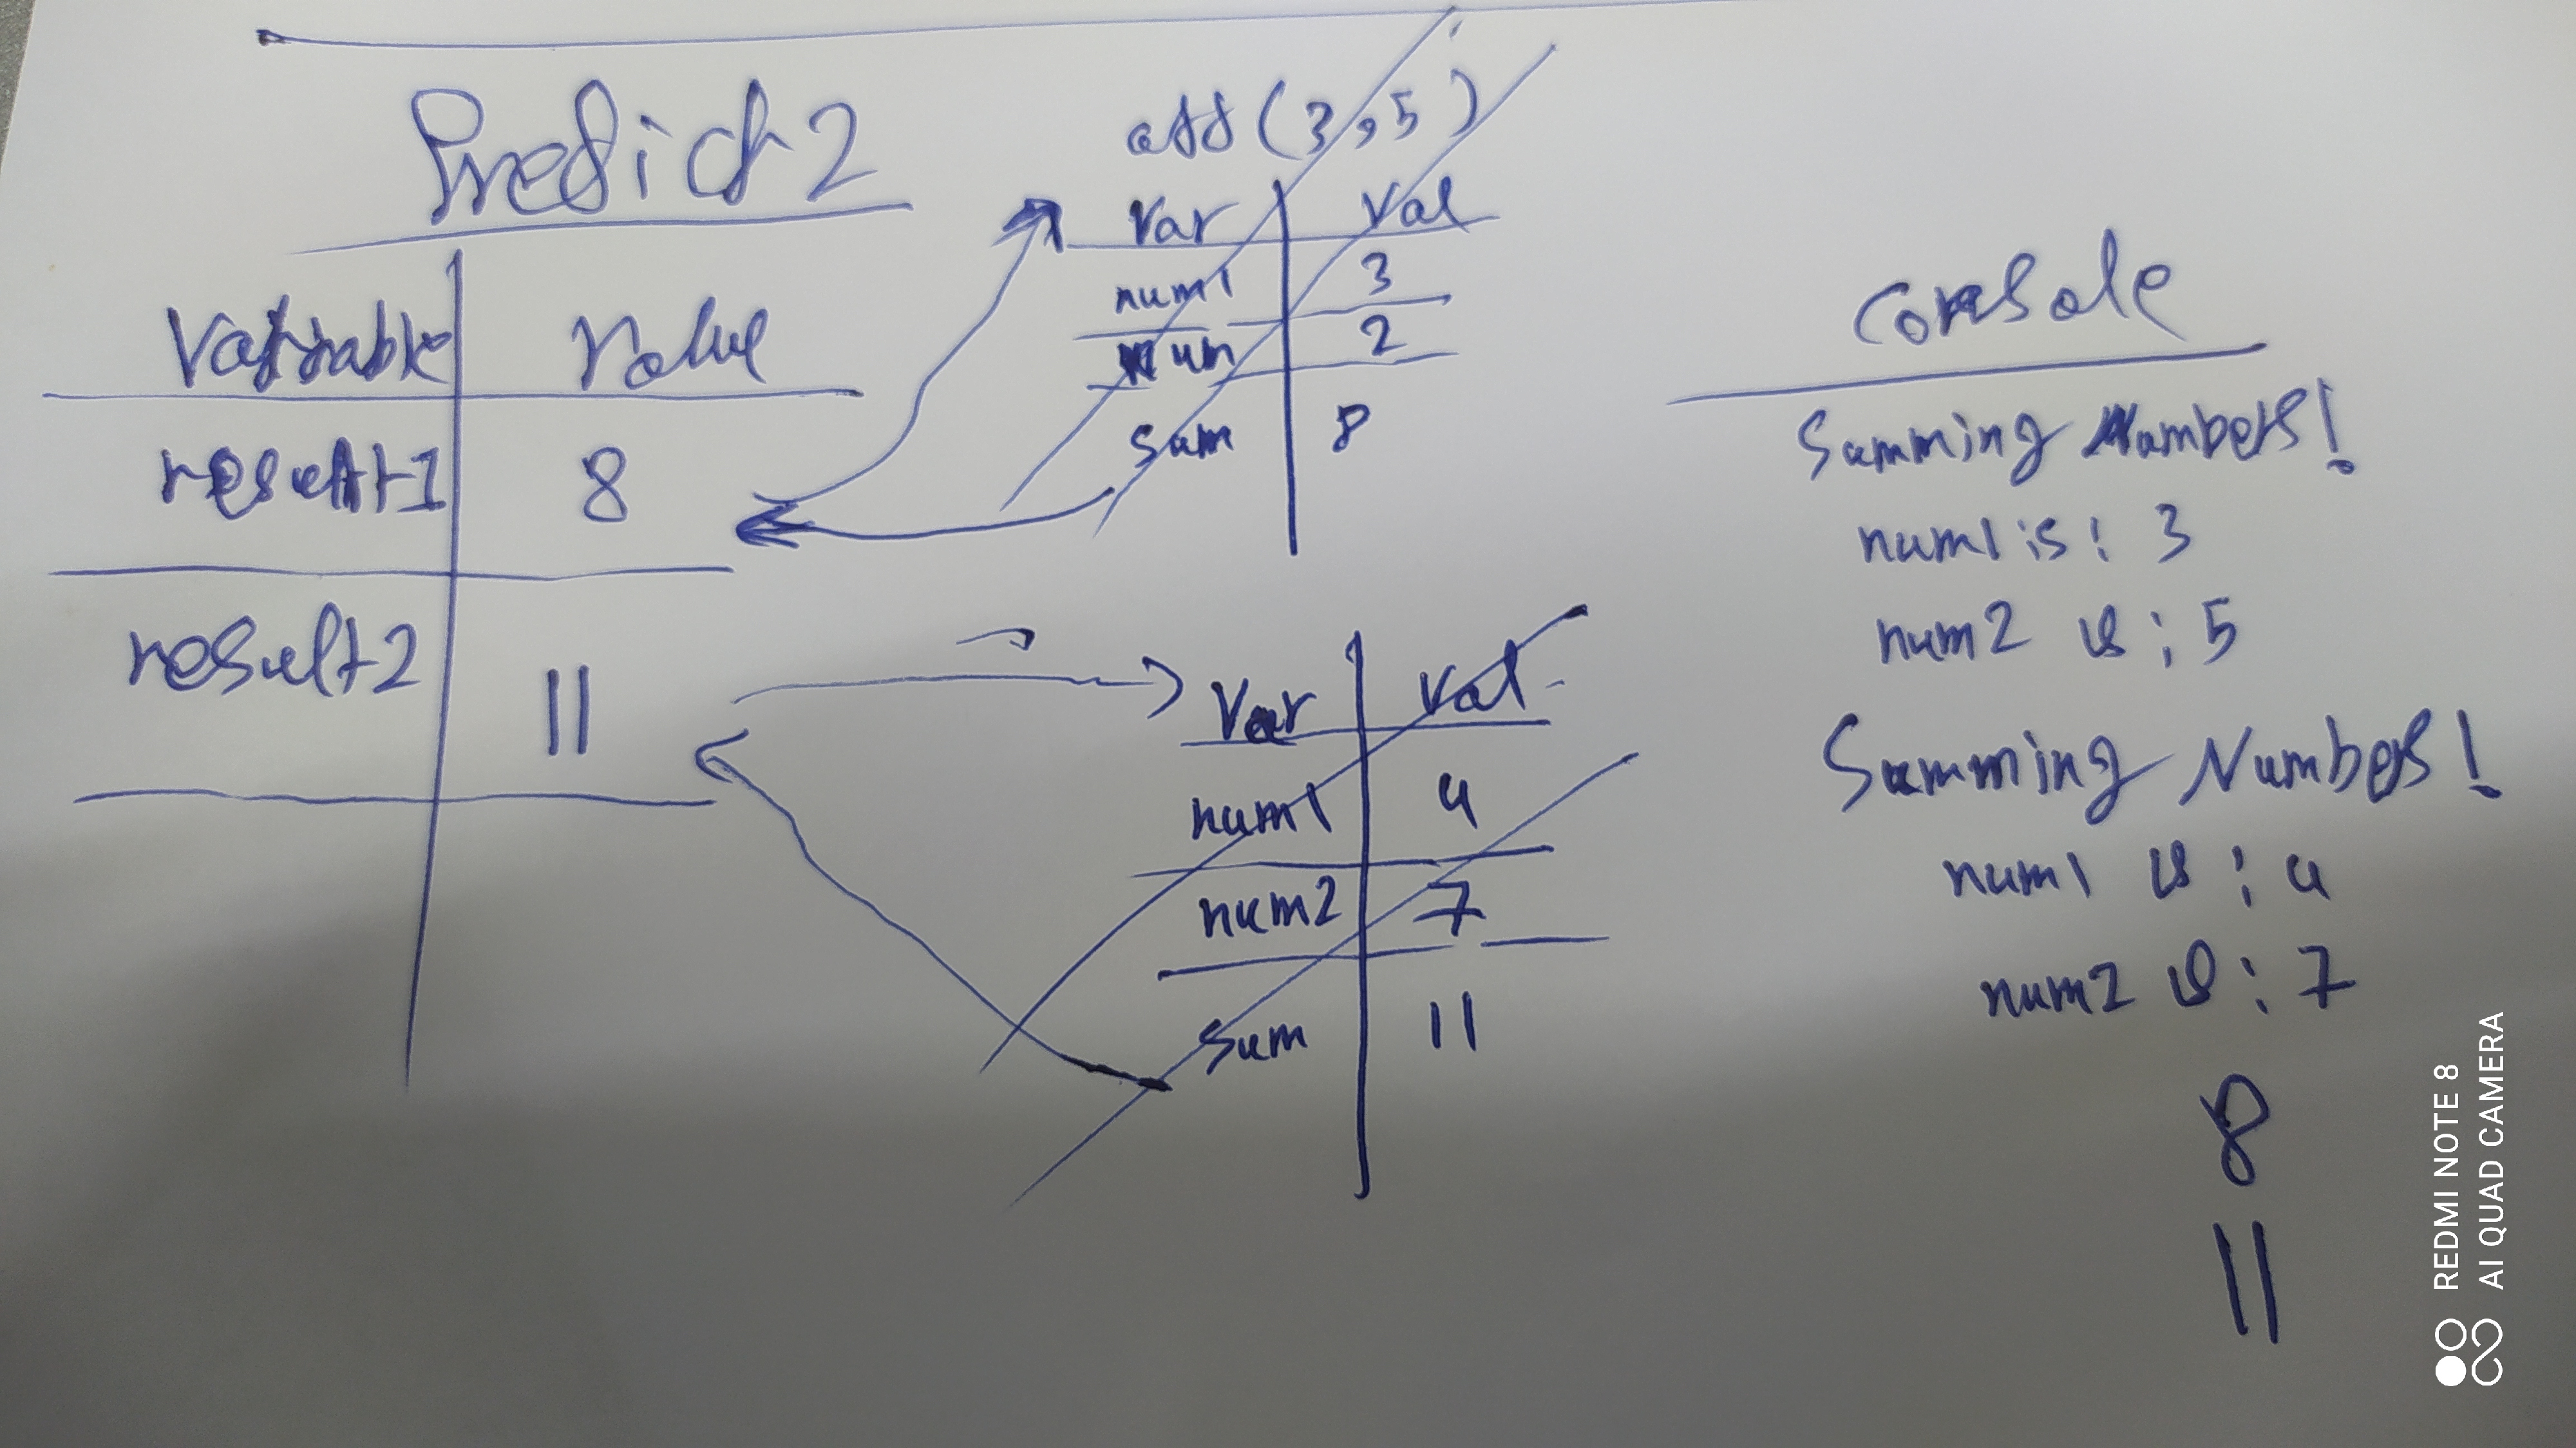 Predict 2
Variable Value
result1 8
result2 11
add(3,5)
Var Val
num1 3
num 2
sum 8
Var Val
num1 4
num2 7
sum 11
Console
Summing Numbers!
num1 is: 3
num2 is: 5
Summing Numbers!
num1 is: 4
num2 is: 7
8
11
REDMI NOTE 8
AI QUAD CAMERA